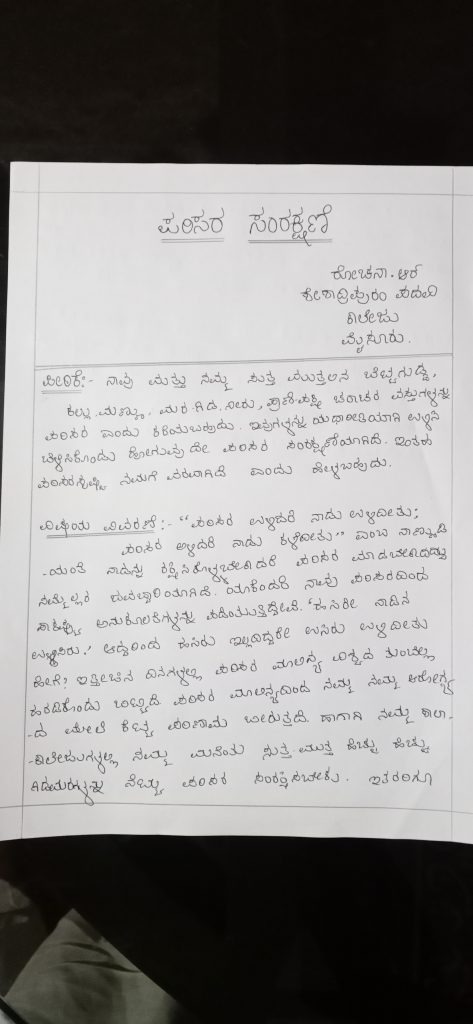 ಪರಿಸರ ಸಂರಕ್ಷಣೆ
ರೋಚನಾ. ಆರ್
ಶೇಶಾದ್ರಿಪುರಂ ಪದವಿ
ಕಾಲೇಜು
ಮೈಸೂರು.
ಪೀಠಿಕೆ:- ನಾವು ಮತ್ತು ನಮ್ಮ ಸುತ್ತ ಮುತ್ತಲಿನ ಬೆಟ್ಟಗುಡ್ಡ,
ಕಲ್ಲು-ಮಣ್ಣು, ಮರ-ಗಿಡ, ನೀರು, ಪ್ರಾಣಿ-ಪಕ್ಷಿ ಚರಾಚರ ವಸ್ತುಗಳನ್ನು
ಪರಿಸರ ಎಂದು ಕರೆಯಬಹುದು. ಇವುಗಳನ್ನು ಯಥಾರೀತಿಯಾಗಿ ಉಳಿಸಿ
ಬೆಳೆಸಿಕೊಂಡು ಹೋಗುವುದೇ ಪರಿಸರ ಸಂರಕ್ಷಣೆಯಾಗಿದೆ. ಇಂತಹ
ಪರಿಸರಸೃಷ್ಟಿ ನಮಗೆ ವರವಾಗಿದೆ ಎಂದು ಹೇಳಬಹುದು.
ವಿಷಯ ವಿವರಣೆ:- "ಪರಿಸರ ಉಳಿದರೆ ನಾಡು ಉಳಿದೀತು;
ಪರಿಸರ ಅಳಿದರೆ ನಾಡು ಕಳೆದೀತು" ಎಂಬ ನಾಣ್ಣುಡಿ
-ಯಂತೆ ನಾಡನ್ನು ರಕ್ಷಿಸಿಕೊಳ್ಳಬೇಕಾದರೆ ಪರಿಸರ ಮಾಡಬೇಕಾದದ್ದು
ನಮ್ಮೆಲ್ಲರ ಜವಾಬ್ದಾರಿಯಾಗಿದೆ. ಯಾಕೆಂದರೆ ನಾವು ಪರಿಸರದಿಂದ
ಸಾಕಷ್ಟು ಅನುಕೂಲಗಳನ್ನು ಪಡೆಯುತ್ತಿದ್ದೇವೆ. 'ಹಸಿರೇ ನಾಡಿನ
ಉಸಿರು.' ಆದ್ದರಿಂದ ಹಸಿರು ಇಲ್ಲದಿದ್ದರೇ ಉಸಿರು ಉಳಿದೀತು
ಹೇಗೆ? ಇತ್ತೀಚಿನ ದಿನಗಳಲ್ಲಿ ಪರಿಸರ ಮಾಲಿನ್ಯ ವಿಶ್ವದ ತುಂಬೆಲ್ಲಾ
ಹರಡಿಕೊಂಡು ಬಂದಿದೆ. ಪರಿಸರ ಮಾಲಿನ್ಯದಿಂದ ನಮ್ಮ ನಮ್ಮ ಆರೋಗ್ಯ
-ದ ಮೇಲೆ ಕೆಟ್ಟ ಪರಿಣಾಮ ಬೀರುತ್ತದೆ. ಹಾಗಾಗಿ ನಮ್ಮ ಶಾಲಾ-
-ಕಾಲೇಜುಗಳಲ್ಲಿ ನಮ್ಮ ಮನೆಯ ಸುತ್ತ-ಮುತ್ತ ಹೆಚ್ಚು ಹೆಚ್ಚು
ಗಿಡಮರಗಳನ್ನು ನೆಟ್ಟು ಪರಿಸರ ಸಂರಕ್ಷಿಸಬೇಕು. ಇತರರಿಗೂ